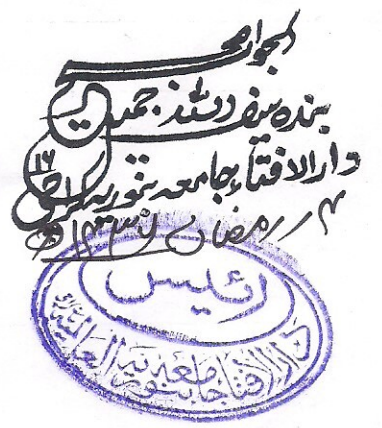 الجواب صحیح
بندہ سیف اللہ جمیل
دارالافتاء جامعہ بنوریہ کراچی ۱۶
۳ رمضان
رئیس
دارالافتاء جامعہ بنوریہ العالمیہ